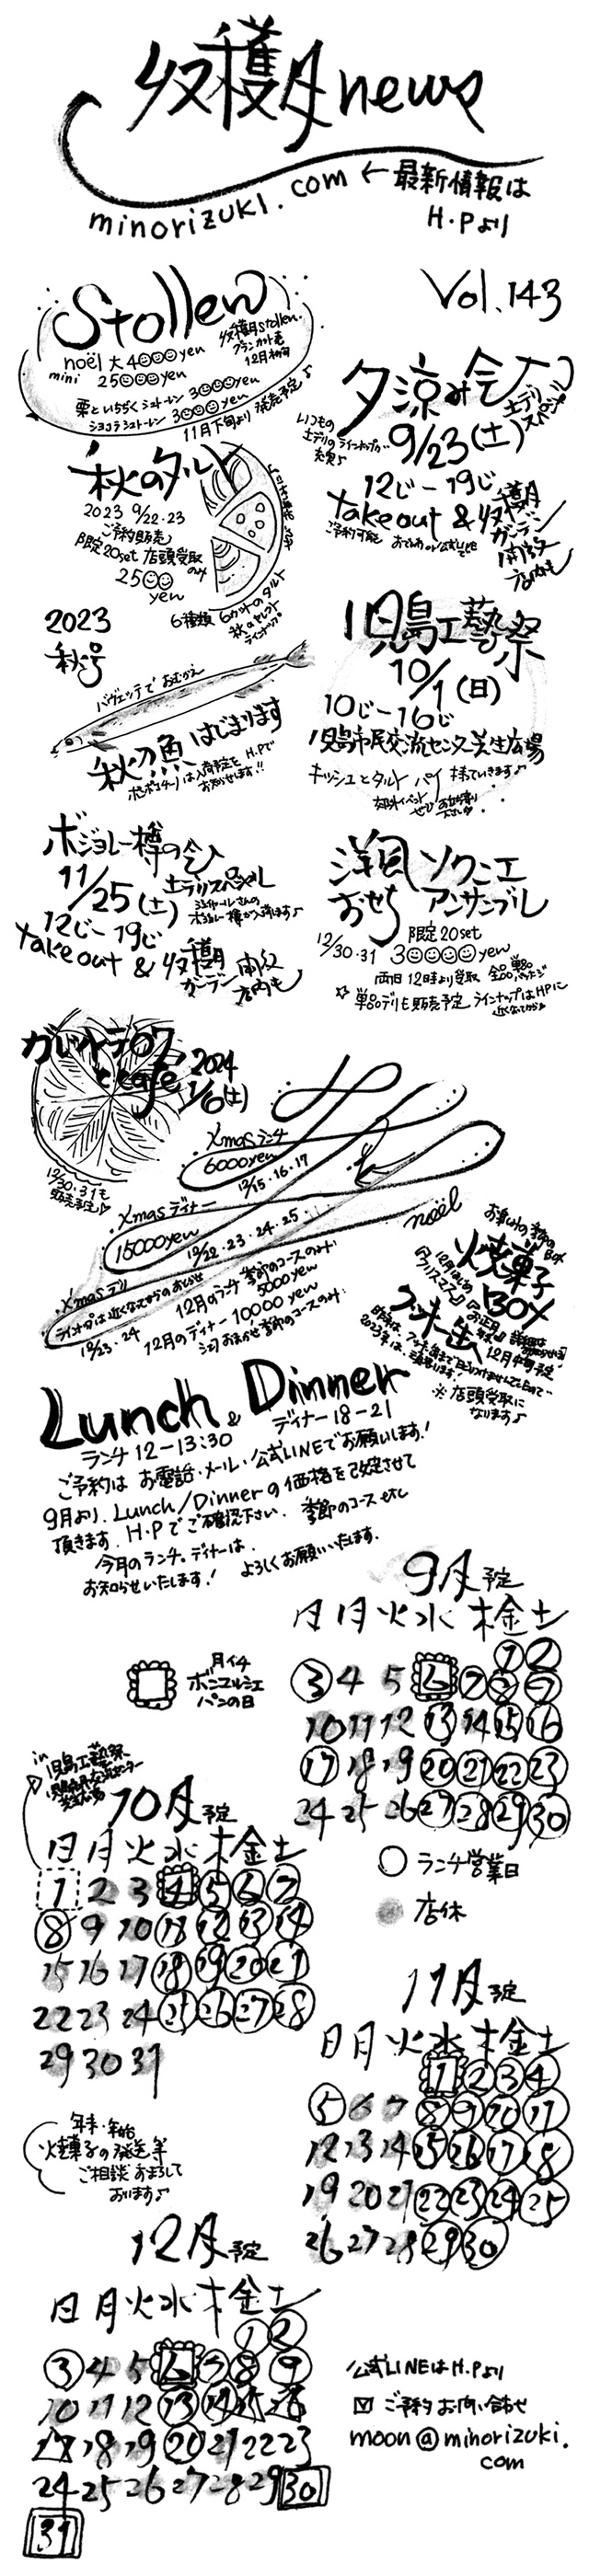 収穫月news
minorizuki.com ← 最新情報は
H.Pより
Vol.143
Stollen
noël 大 4000yen
mini 2500yen
収穫月stollen.
12月初旬
栗といちぢくシュトーレン 3000yen
ショコラシュトーレン 3000yen
11月下旬より 発売予定♪
夕涼み会
土デリ
スペシャル
9/23(土)
いつもの
土デリのラインナップが
充実♪
12じ-19じ
Take out & 収穫月
ガーデン
開放
店内も
ご予約可能
秋のタルト
2023 9/22・23
ご予約販売
限定20set 店頭受取
のみ
2500
yen
6種類 6カットのタルト
秋のセレクト
ラインナップ
2023
秋号
児島工藝祭
10/1(日)
10じ-16じ
児島市民交流センター芝生広場
キッシュとタルト パイ 持ていきます♪
野外イベント
ぜひ お立ち寄り
下さい
パヴェッテで おむかえ
秋刀魚 はじまります
ポンポコチーノは入荷予定を H.Pで
お知らせします!!
ボジョレー樽の会
11/25(土)
土デリスペシャル
ボジョレー樽が入荷します♪
12じ-19じ
Take out & 収穫月
ガーデン 開放
店内も
洋風 ソクニエ
おせち アンサンブル
限定20set
12/30・31 30000yen
両日 12時より受取
☆ 単品デリも販売予定 ラインナップはHPに
近くなってから
ガレットデロワ
とcafe
2024
1/6(土)
12/30・31も
販売予定♪
Xmasランチ
6000yen
12/15・16・17
Xmasディナー
15000yen
12/22・23・24・25
noël
Xmasデリ
ラインナップは近くなってからのお知らせ
12/23・24
12月のランチ 季節のコースのみ
5000yen
12月のディナー 10000yen
シェフおまかせ 季節のコースのみ
お楽しみの季節のBOX
焼菓子
BOX
12月はじめ
『クリスマス』
『お正月』
クッキー缶
12月中旬予定
※店頭受取に
なります♪
Lunch & Dinner
ランチ 12-13:30
ディナー 18-21
ご予約は お電話・メール・公式LINEでお願いします!
9月より、Lunch/Dinnerの価格を改定させて
頂きます. H.Pでご確認下さい. 季節のコースetc
今月のランチ。ディナーは、
お知らせいたします! よろしくお願いいたします.
月イチ
ボニユルシェ
パンの日
9月予定
日 月 火 水 木 金 土
1 2
3 4 5 6 7 8 9
10 11 12 13 14 15 16
17 18 19 20 21 22 23
24 25 26 27 28 29 30
○ ランチ営業日
店休
in
児島工藝祭
児島市民交流センター
芝生広場
10月予定
日 月 火 水 木 金 土
1 2 3 4 5 6 7
8 9 10 11 12 13 14
15 16 17 18 19 20 21
22 23 24 25 26 27 28
29 30 31
11月予定
日 月 火 水 木 金 土
1 2 3 4
5 6 7 8 9 10 11
12 13 14 15 16 17 18
19 20 21 22 23 24 25
26 27 28 29 30
年末・年始
焼菓子の発送等
ご相談 おまちして
おります♪
12月予定
日 月 火 水 木 金 土
1 2
3 4 5 6 7 8 9
10 11 12 13 14 15 16
17 18 19 20 21 22 23
24 25 26 27 28 29 30
31
公式LINEはH.Pより
ご予約 お問い合わせ
moon@minorizuki.
com